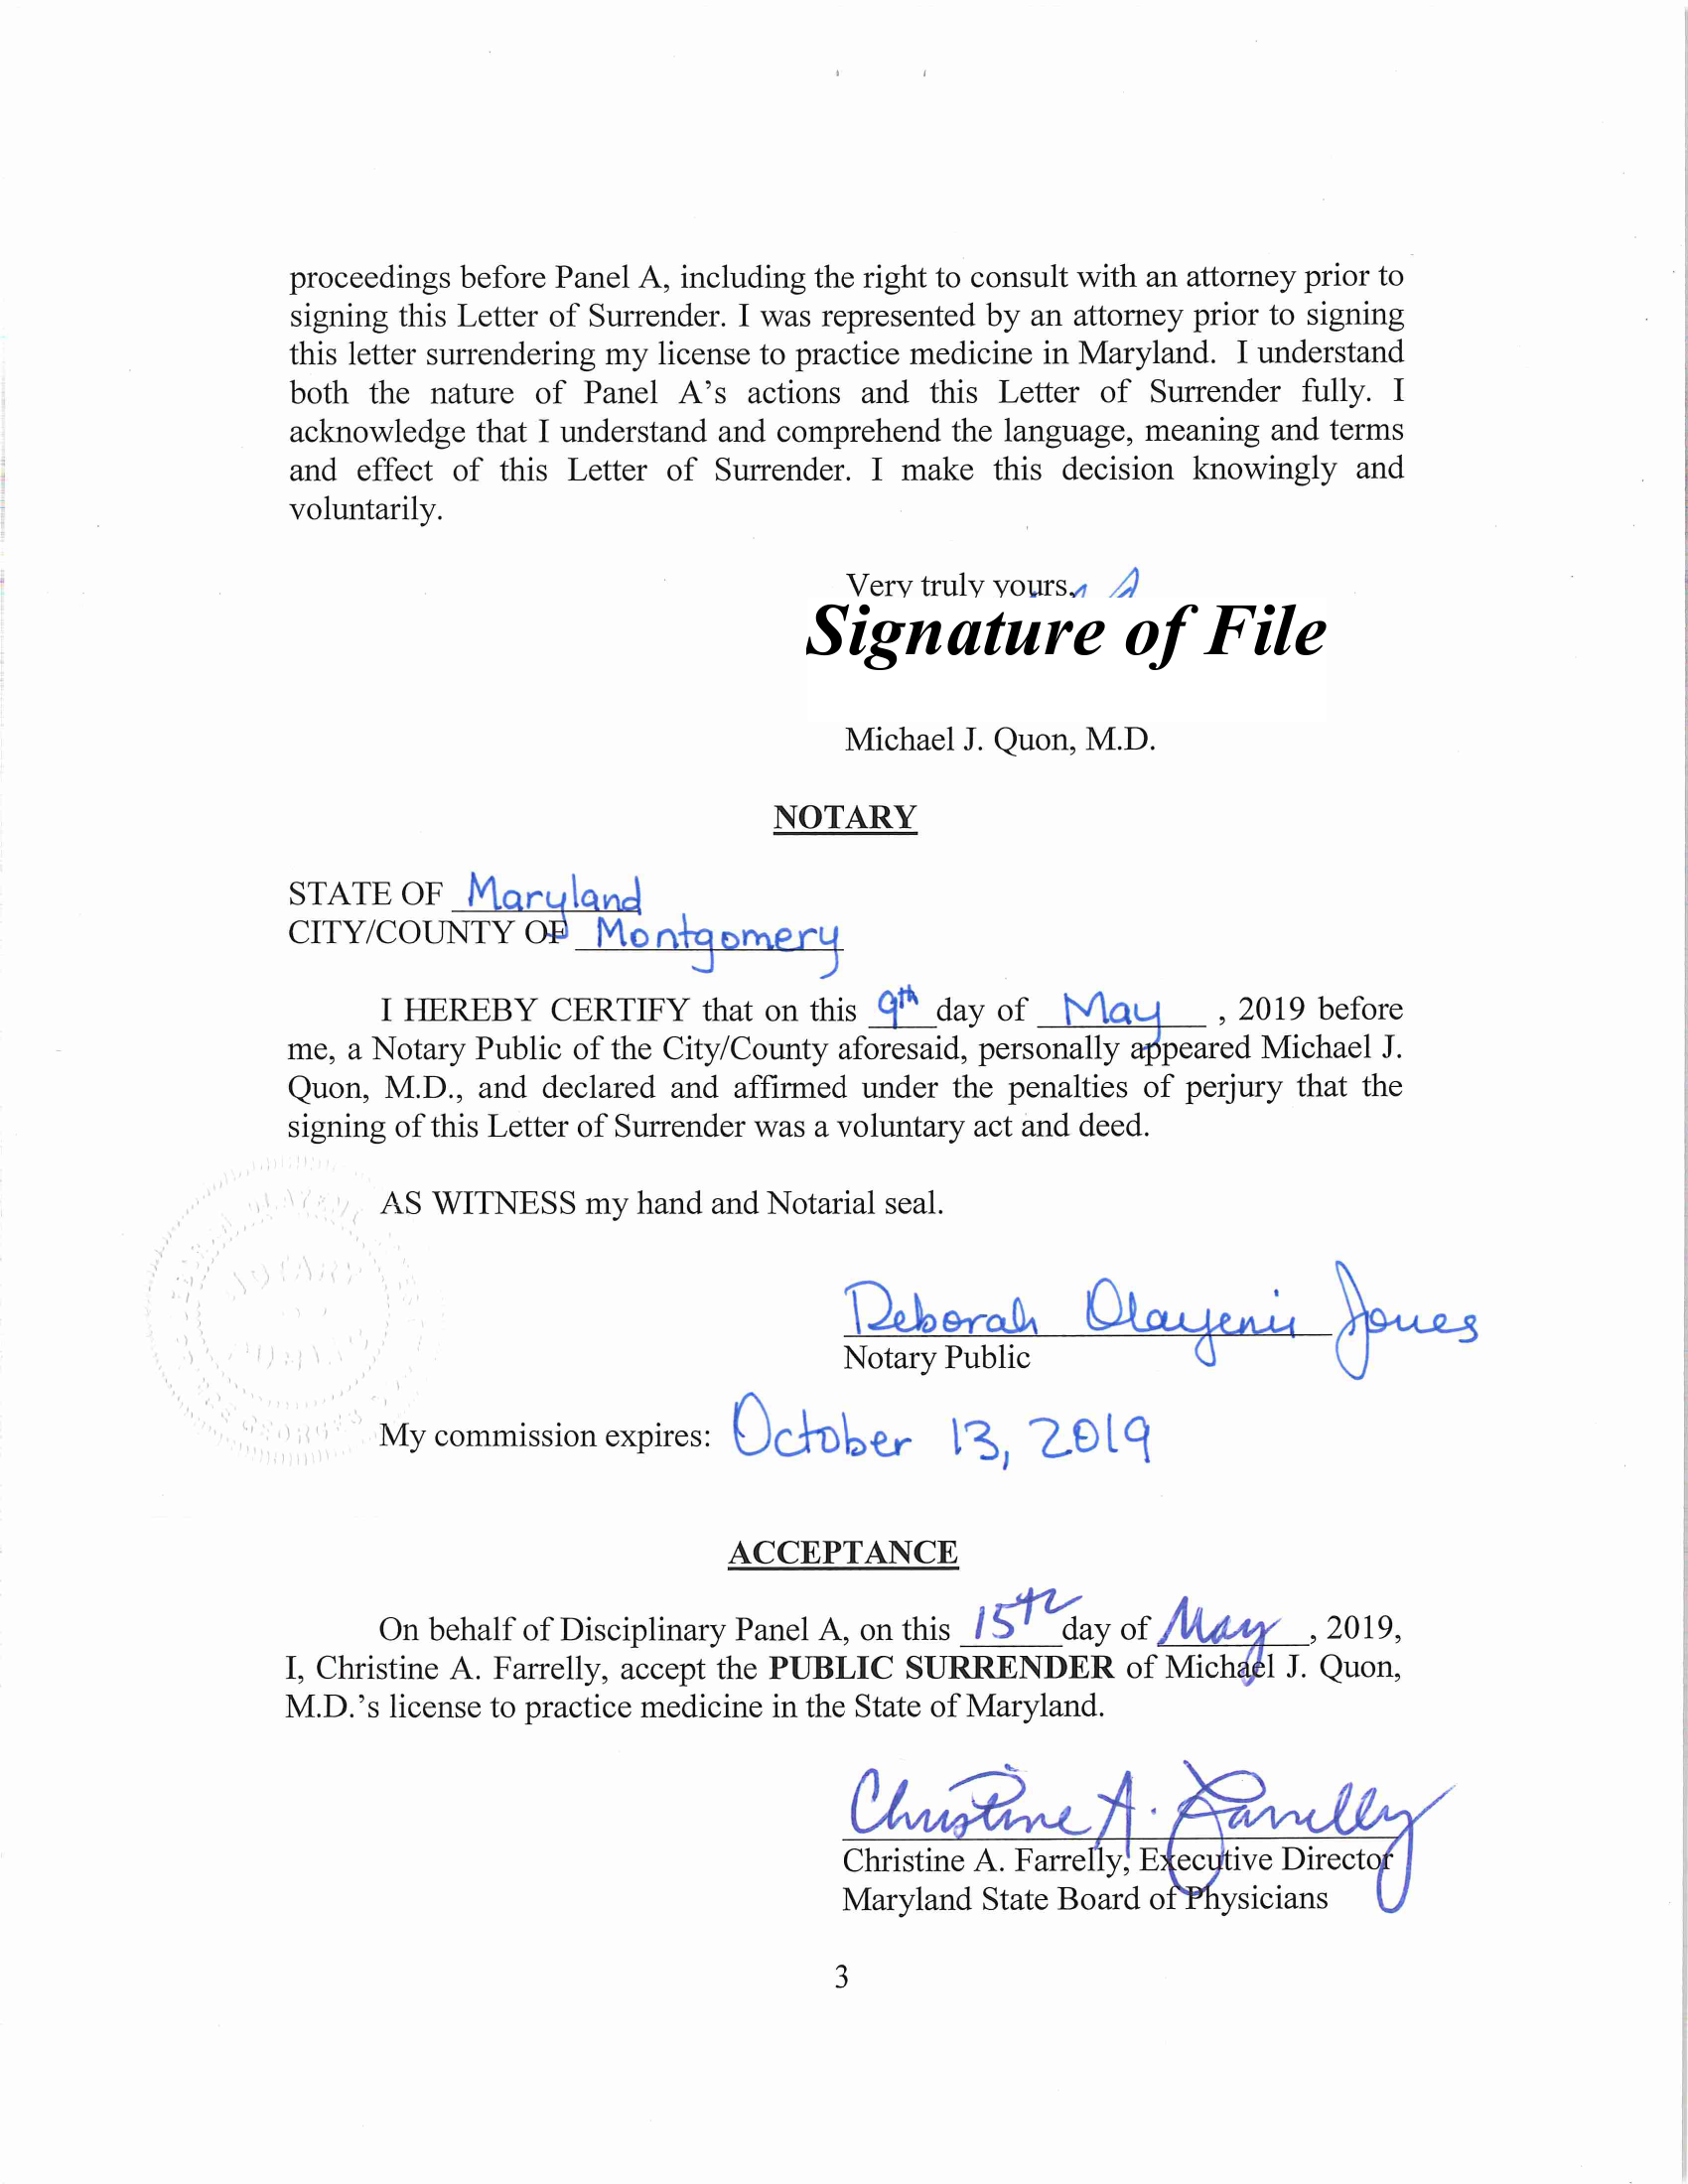 proceedings before Panel A, including the right to consult with an attorney prior to
signing this Letter of Surrender. I was represented by an attorney prior to signing
this letter surrendering my license to practice medicine in Maryland. I understand
both the nature of Panel A's actions and this Letter of Surrender fully. I
acknowledge that I understand and comprehend the language, meaning and terms
and effect of this Letter of Surrender. I make this decision knowingly and
voluntarily.
Very truly yours,
Signature of File
Michael J. Quon, M.D.
NOTARY
STATE OF Maryland
CITY/COUNTY OF Montgomery
I HEREBY CERTIFY that on this 9th day of May, 2019 before
me, a Notary Public of the City/County aforesaid, personally appeared Michael J.
Quon, M.D., and declared and affirmed under the penalties of perjury that the
signing of this Letter of Surrender was a voluntary act and deed.
AS WITNESS my hand and Notarial seal.
NOTARY
PUBLIC
Deborah Olayenis Jones
Notary Public
My commission expires: October 13, 2019
ACCEPTANCE
On behalf of Disciplinary Panel A, on this 15th day of May, 2019,
I, Christine A. Farrelly, accept the PUBLIC SURRENDER of Michael J. Quon,
M.D.'s license to practice medicine in the State of Maryland.
Christine A. Farrelly
Christine A. Farrelly, Executive Director
Maryland State Board of Physicians
3